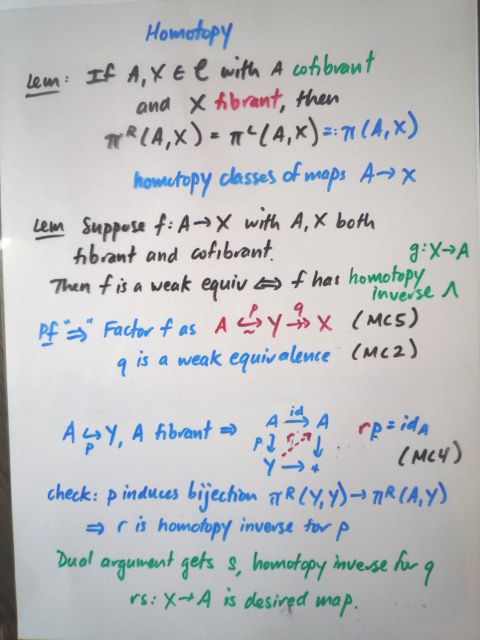 Homotopy
Lem: If A, X ∈ C with A cofibrant
and X fibrant, then
π^R(A,X) = π^L(A,X) =: π(A,X)
homotopy classes of maps A→X
Lem Suppose f: A→X with A, X both
fibrant and cofibrant.
g: X→A
Then f is a weak equiv ⟺ f has homotopy
inverse ∧
Pf "⇒" Factor f as A ↪ p ~ Y ↠ q X (MC5)
q is a weak equivalence (MC2)
A ↪ p ~ Y, A fibrant ⇒ A id → A rp = id_A
p ↓ ~ r ↓
Y → * (MC4)
check: p induces bijection π^R(Y,Y) → π^R(A,Y)
⇒ r is homotopy inverse for p
Dual argument gets s, homotopy inverse for q
rs: X→A is desired map.